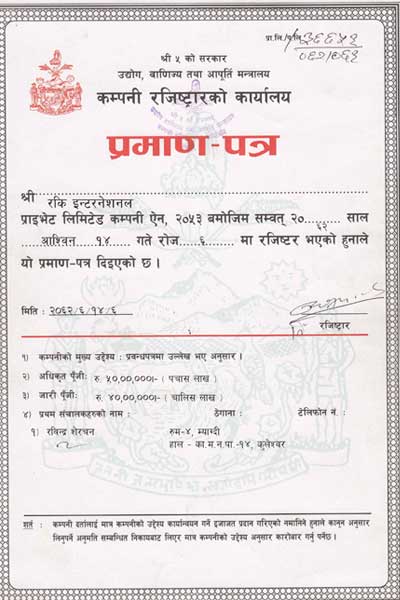 प्रा.लि./प.लि. ३६६५१
०६२/०६३
श्री ५ को सरकार
उद्योग, वाणिज्य तथा आपूर्ति मन्त्रालय
कम्पनी रजिष्ट्रारको कार्यालय
प्रमाण-पत्र
श्री रकि इन्टरनेशनल
प्राइभेट लिमिटेड कम्पनी ऐन, २०५३ बमोजिम सम्वत् २० ६२ साल
आश्विन १४ गते रोज ६ मा रजिष्टर भएको हुनाले
यो प्रमाण-पत्र दिइएको छ ।
मिति : २०६२/६/१४/६
रजिष्ट्रार
१) कम्पनीको मुख्य उद्देश्य : प्रवन्धपत्रमा उल्लेख भए अनुसार ।
२) अधिकृत पूँजीः रु. ५०,००,०००।- (पचास लाख)
३) जारी पूँजीः रु. ४०,००,०००।- (चालिस लाख)
४) प्रथम संचालकहरुको नाम : ठेगाना : टेलिफोन नं. :
१) रविन्द्र शेरचन रुम-४, म्याग्दी
हाल - का.म.न.पा.-१४, कुलेश्वर
शर्त : कम्पनी दर्तालाई मात्र कम्पनीको उद्देश्य कार्यान्वयन गर्न इजाजत प्रदान गरिएको नमानिने हुनाले कानून अनुसार
लिनुपर्ने अनुमति सम्बन्धित निकायबाट लिएर मात्र कम्पनीको उद्देश्य अनुसार कारोबार गर्नु पर्नेछ ।